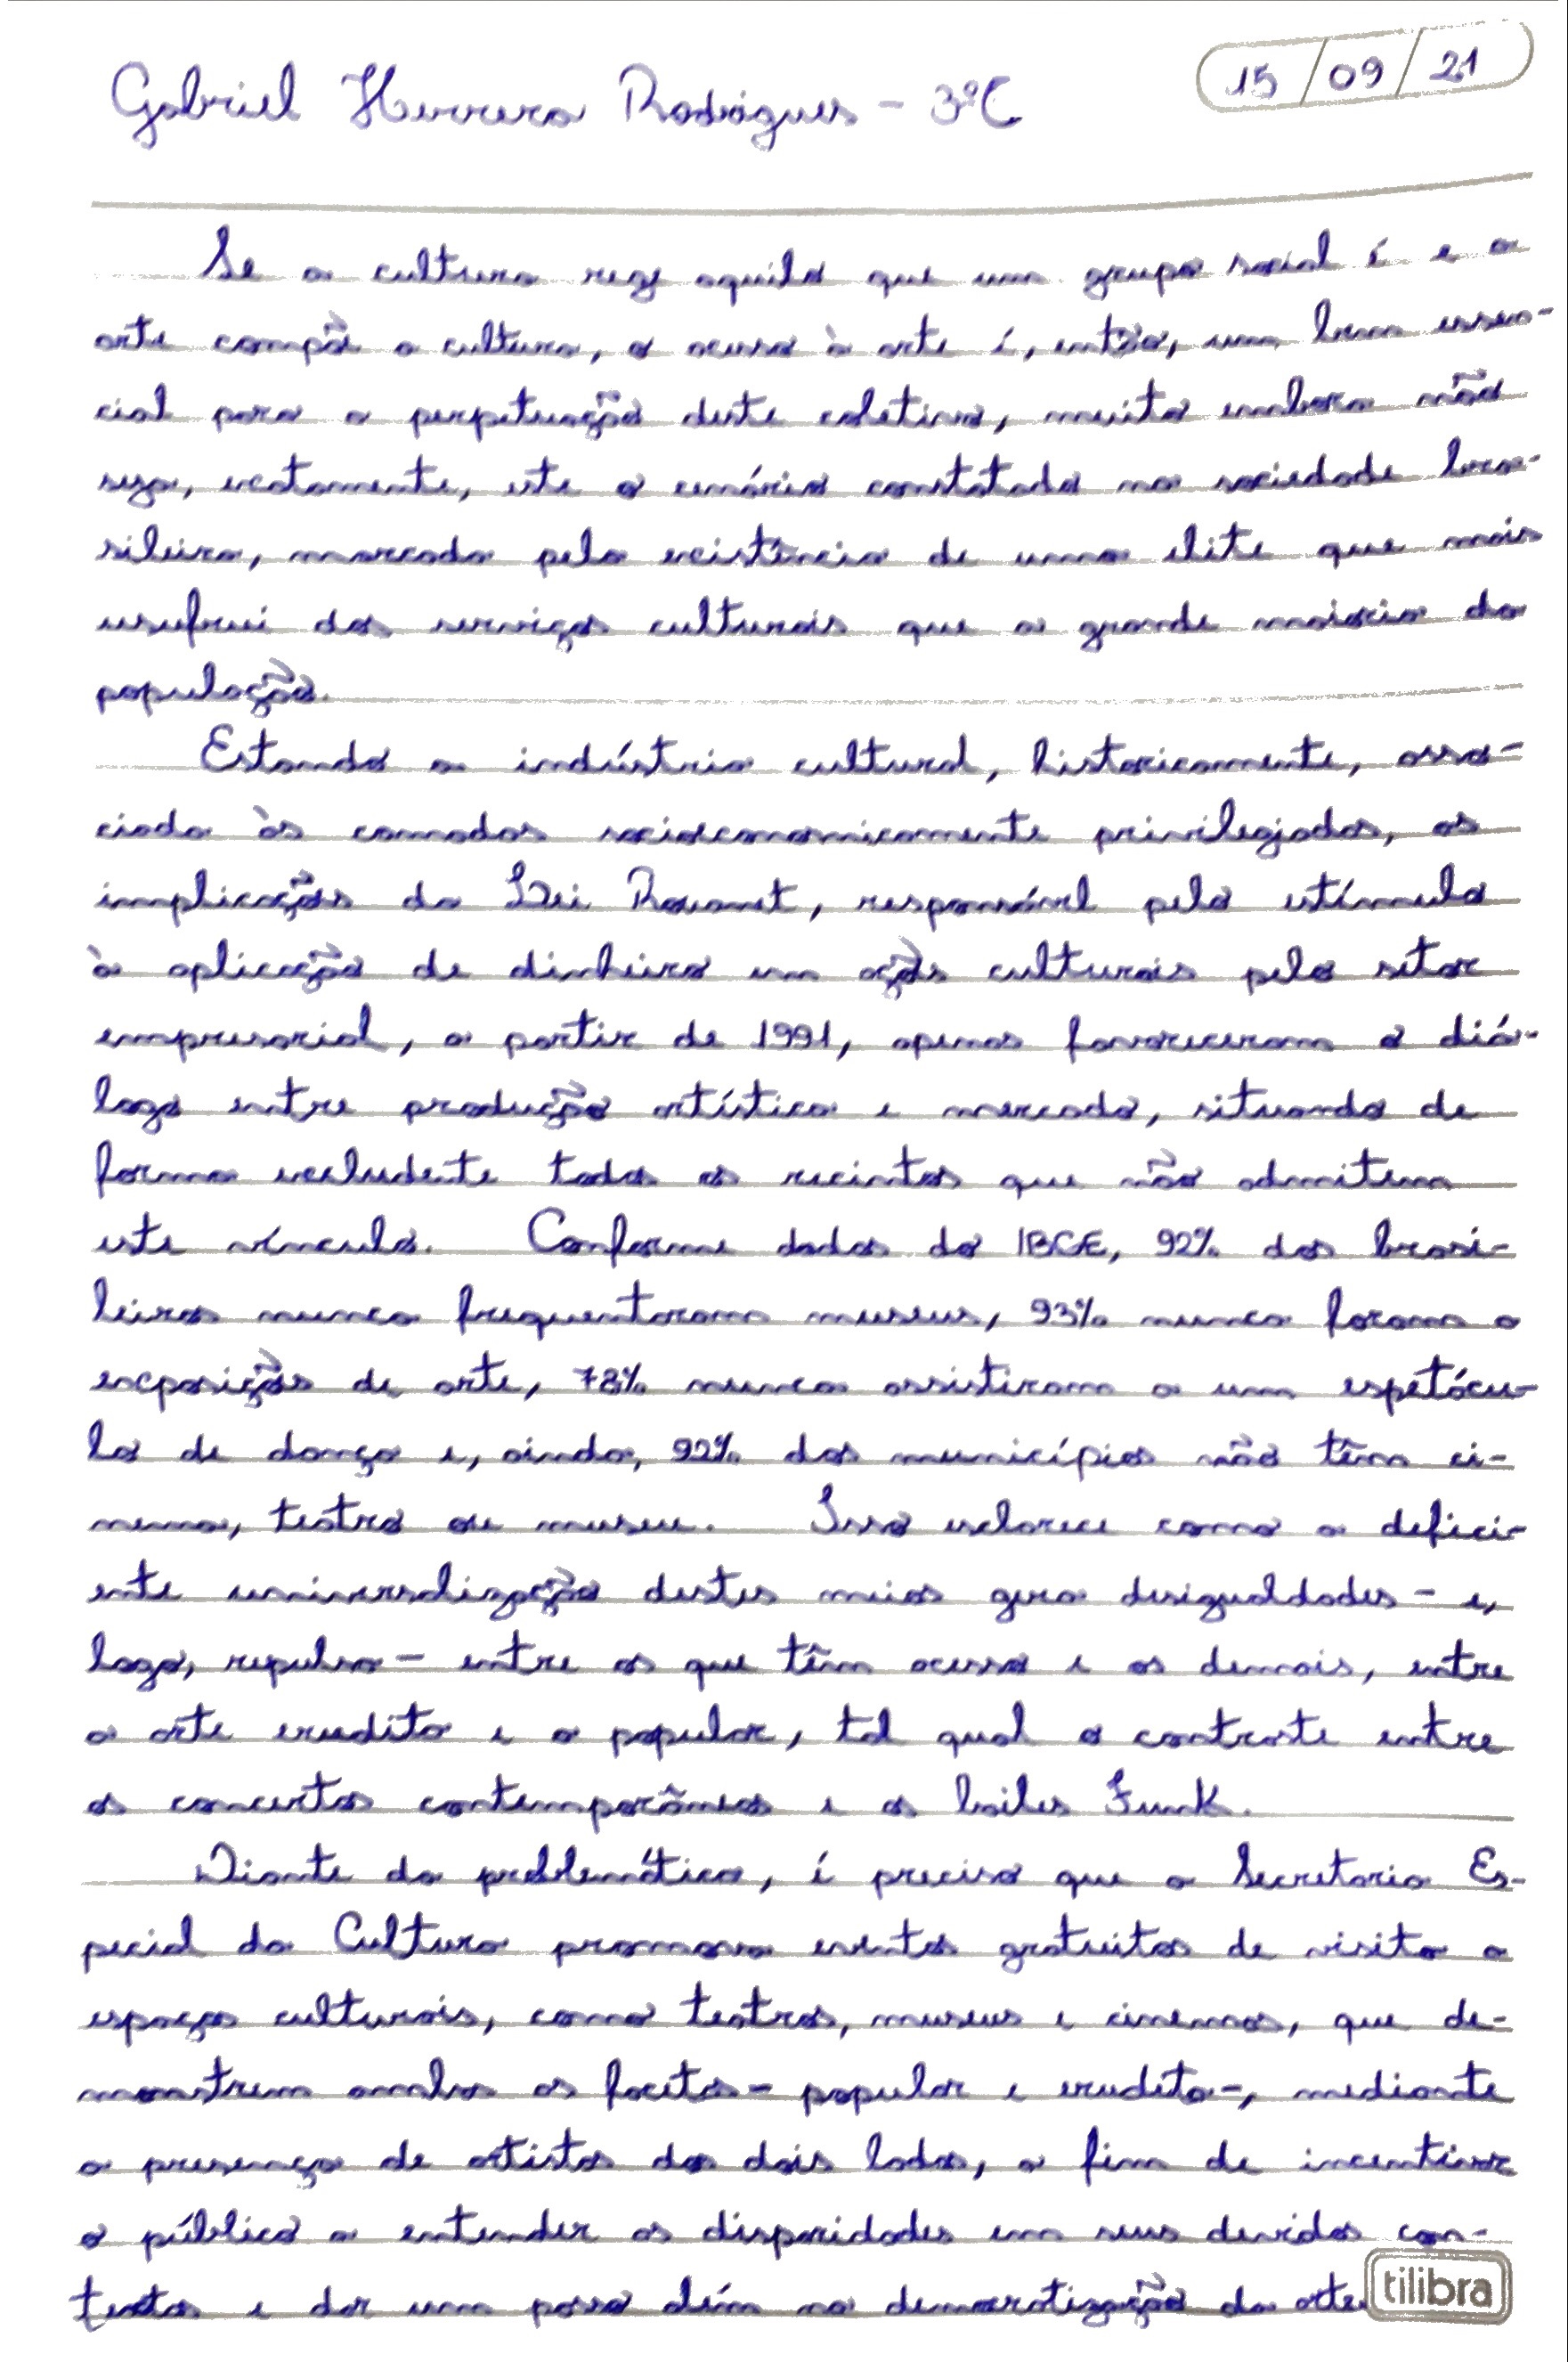 Gabriel Herrera Rodrigues - 3ºC
15/09/21
Se a cultura rege aquilo que um grupo social é e a
arte compõe a cultura, o acesso à arte é, então, um bem essen-
cial para a perpetuação deste coletivo, muito embora não
seja, exatamente, este o cenário constatado na sociedade bra-
sileira, marcada pela existência de uma elite que mais
usufrui dos serviços culturais que a grande maioria da
população.
Estando a indústria cultural, historicamente, asso-
ciada às camadas socioeconomicamente privilegiadas, as
implicações da Lei Rouanet, responsável pelo estímulo
à aplicação de dinheiro em ações culturais pelo setor
empresarial, a partir de 1991, apenas favoreceram o diá-
logo entre produção artística e mercado, situando de
forma excludente todos os recintos que não admitem
este vínculo. Conforme dados do IBGE, 92% dos brasi-
leiros nunca frequentaram museus, 93% nunca foram a
exposições de arte, 78% nunca assistiram a um espetácu-
lo de dança e, ainda, 92% dos municípios não têm ci-
nema, teatro ou museu. Isso esclarece como a defici-
ente universalização destes meios gera desigualdades - e,
logo, repulsa - entre os que têm acesso e os demais, entre
a arte erudita e a popular, tal qual o contraste entre
os concertos contemporâneos e os bailes Funk.
Diante da problemática, é preciso que a Secretaria Es-
pecial da Cultura promova eventos gratuitos de visita a
espaços culturais, como teatros, museus e cinemas, que de-
monstrem ambas as facetas - popular e erudita -, mediante
a presença de artistas dos dois lados, a fim de incentivar
o público a entender as disparidades em seus devidos con-
textos e dar um passo além na democratização da arte.
tilibra